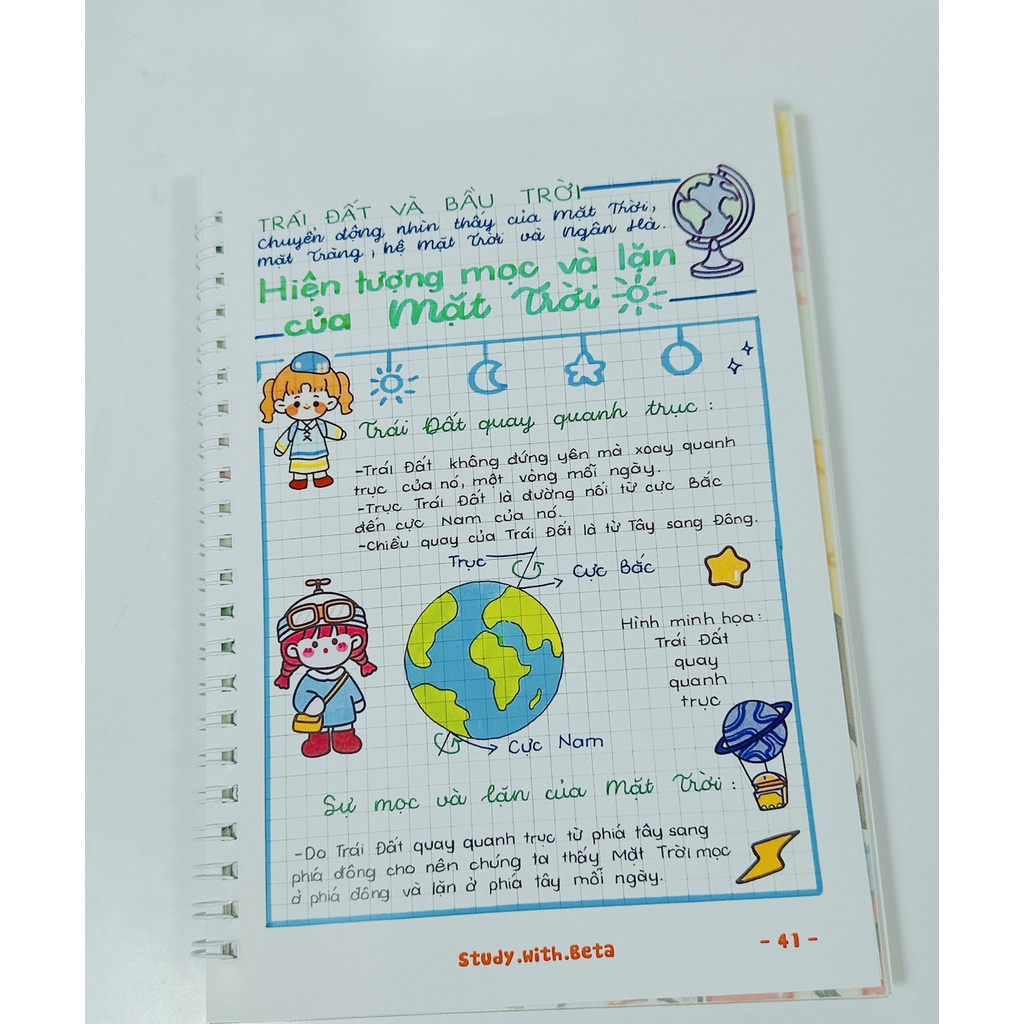 TRÁI ĐẤT VÀ BẦU TRỜI
chuyển động nhìn thấy của mặt Trời,
mặt Trăng, hệ mặt Trời và Ngân Hà.
Hiện tượng mọc và lặn
của Mặt Trời
Trái Đất quay quanh trục:
-Trái Đất không đứng yên mà xoay quanh
trục của nó, một vòng mỗi ngày.
-Trục Trái Đất là đường nối từ cực Bắc
đến cực Nam của nó.
-Chiều quay của Trái Đất là từ Tây sang Đông.
Trục
Cực Bắc
Hình minh họa:
Trái Đất
quay
quanh
trục
Cực Nam
Sự mọc và lặn của Mặt Trời:
-Do Trái Đất quay quanh trục từ phiá tây sang
phiá đông cho nên chúng ta thấy Mặt Trời mọc
ở phiá đông và lặn ở phiá tây mỗi ngày.
Study.With.Beta
- 41 -